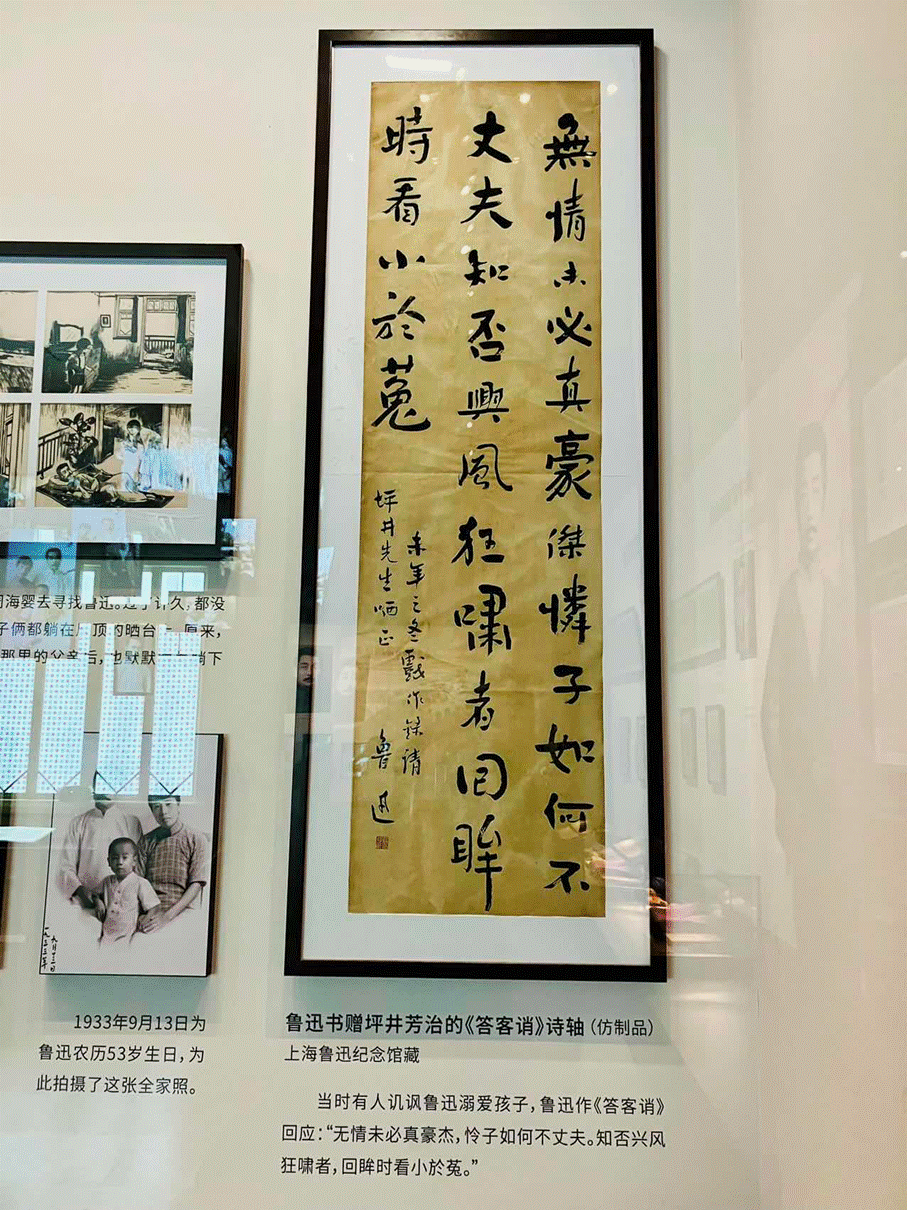 無情未必真豪傑憐子如何不
丈夫知否興風狂嘯者回眸
時看小於菟
未年之冬戲作錄請
坪井先生哂正
魯迅
海婴去寻找鲁迅。过了许久，都没
子俩都躺在顶的晒台上。原来，
那里的父亲后，也默默躺下
一九三三年
九月十三日
1933年9月13日为
鲁迅农历53岁生日，为
此拍摄了这张全家照。
鲁迅书赠坪井芳治的《答客诮》诗轴（仿制品）
上海鲁迅纪念馆藏
当时有人讥讽鲁迅溺爱孩子，鲁迅作《答客诮》
回应：“无情未必真豪杰，怜子如何不丈夫。知否兴风
狂啸者，回眸时看小於菟。”